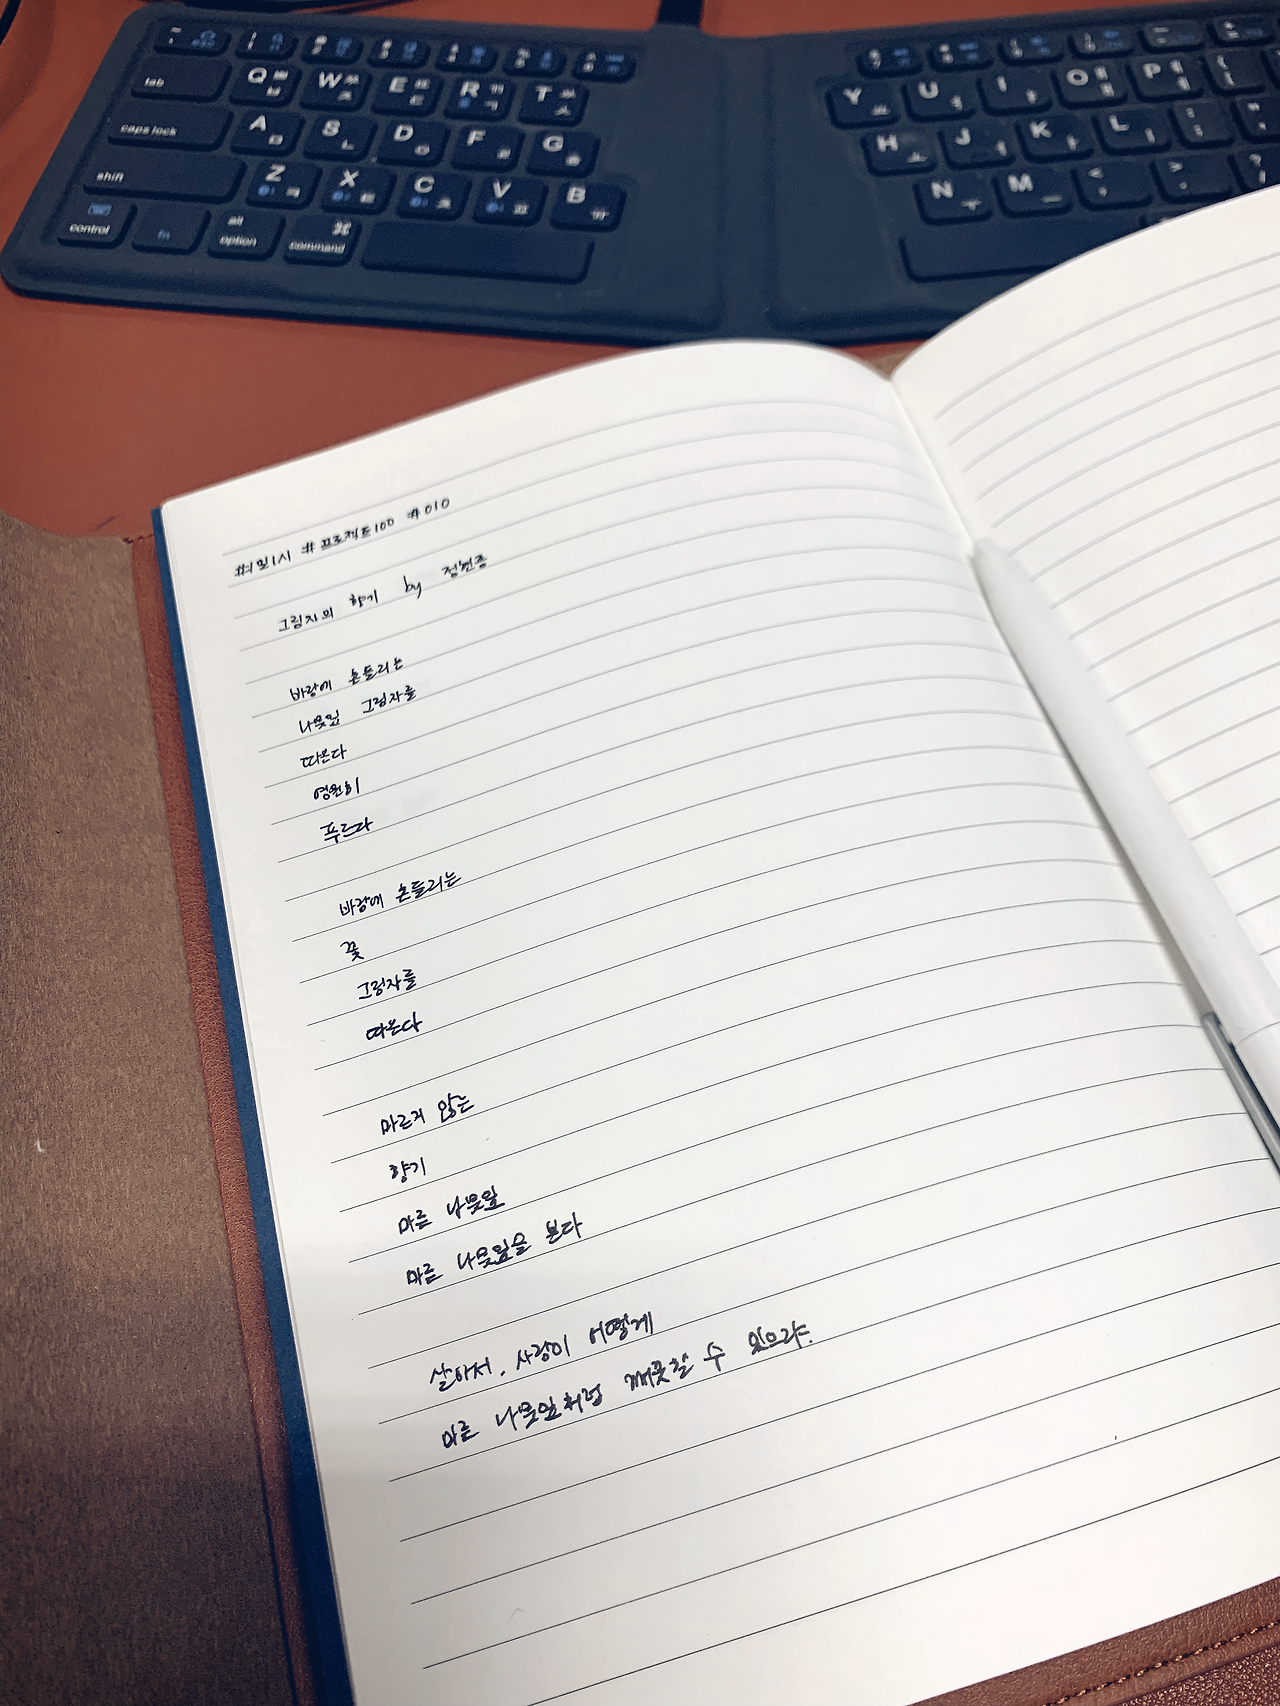 tab Q W E R T Y U I O P
caps lock A S D F G H J K L
shift Z X C V B N M
control fn alt option ⌘ command
#1일1시 #프로젝트100 #010
그림자의 향기 by 정현종
바람에 흔들리는
나뭇잎 그림자를
따온다
영원히
푸르다
바람에 흔들리는
꽃
그림자를
따온다
마르지 않는
향기
마른 나뭇잎
마른 나뭇잎을 본다
살아서, 사랑이 어떻게
마른 나뭇잎처럼 깨끗할 수 있으랴.